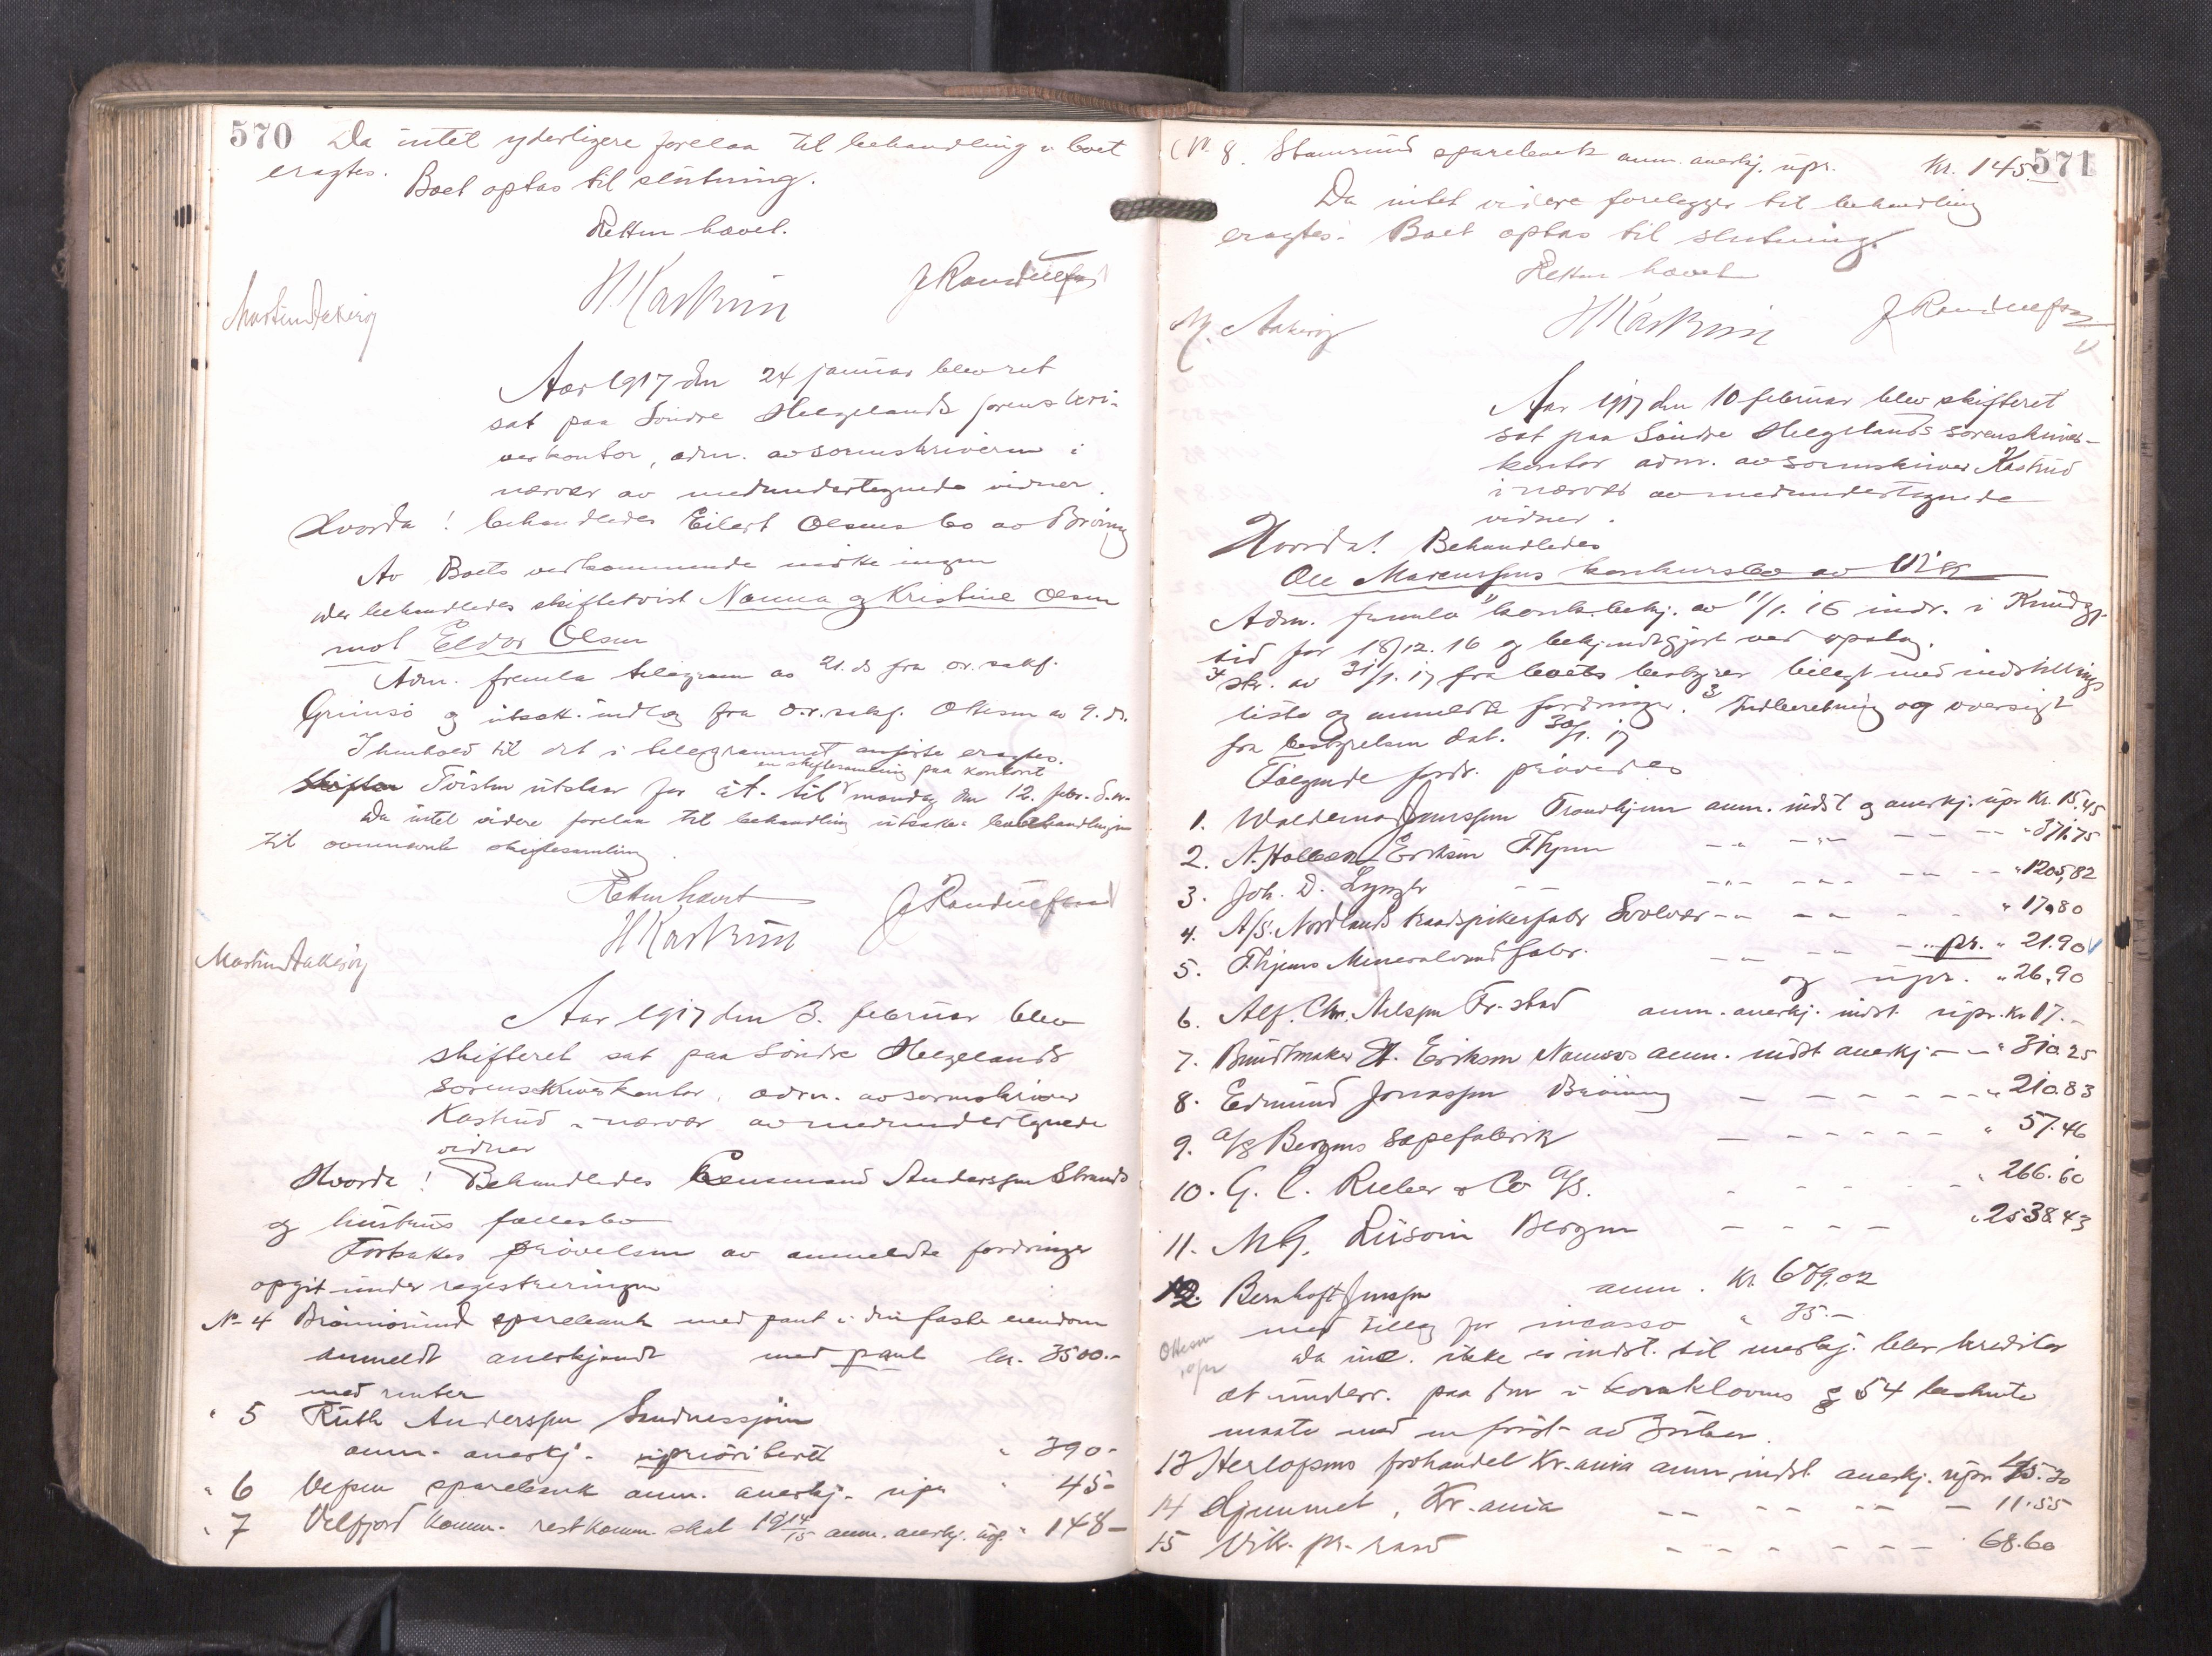 570 Da intet yderligere forelaa til behandling i boet
eragtes. Boet optas til slutning.
Retten hævet.
H Kastrud J Randulfsen
Martin Aakerøy
Aar 1917 den 24 januar blev ret
sat paa Søndre Helgelands sorenskri-
verkontor, adm. av sorenskriveren i
nærvær av medundertegnede vidner.
Hvorda! behandledes Eilert Olsens bo av Brönnøy
Av Boets vedkommende møtte ingen
der behandledes skiftetvist Nanna og Kristine Olsen
mot Eldor Olsen
Adm. fremla telegram av 21. ds fra o.r. sakf.
Grimsö og utsatt. indlæg fra o.r. sakf. Ottesen av 9. ds.
I henhold til det i telegrammet anførte eragtes.
en skiftesamling paa kontoret
Skiften Tvisten utstaar til mandag den 12. febr. d. m.
Da intet videre forelaa til behandling utsættes bobehandlingen
til ovennævnte skiftesamling.
Retten hævet
H Kastrud J Randulfsen
Martin Aakerøy
Aar 1917 den 3. februar blev
skifteret sat paa Søndre Helgelands
sorenskriverkontor, adm. av sorenskriver
Kastrud i nærvær av medundertegnede
vidner
Hvorda! Behandledes Anderssen Strands
og hustrus fællesbo
Fortsattes prøvelsen av anmeldte fordringer
opgit under registreringen
No 4 Brönnösund sparebank med pant i den faste eiendom
anmeldt anerkjendt med pant kr. 3500.-
med renter
" 5 Ruth Anderssen Sandnessjøen
anm. anerkj. upriöritert " 390-
" 6 Vefsen sparebank anm. anerkj. upr " 45-
" 7 Velfjord komm. rest komm. skat 1914/15 anm. anerkj. up. " 148-
No. 8. Stamsund sparebank anm. anerkj. upr. Kr. 145.- 571
Da intet videre forelegges til behandling
eragtes: Boet optas til slutning.
Retten hævet
M. Aakerøy H Kastrud J Randulfsen
Aar 1917 den 10 februar blev skifteret
sat paa Søndre Helgelands sorenskriver-
kontor adm. av sorenskriver Kastrud
i nærvær av medundertegnede
vidner.
Hvorda! Behandledes
Ole Marcussens konkursbo av Vik
Adm. fremla 1) konk.bekj. av 11/1. 16 indr. i Kundgj.
tid for 18/12. 16 og bekjendtgjort ved opslag.
2 skr. av 31/1. 17 fra boets bestyrer bilagt med indstillings
liste og anmeldte fordringer. 3 Indberetning og oversigt
fra bestyrelsen dat. 30/1. 17
Følgende fordr. prøvedes
1. Waldemar Jenssen Trondhjem anm. indst og anerkj. upr Kr. 15.45
2. A. Holbæk Eriksen Thjem - " - - " - - - - " 371.75
3. Joh. D. Lyngbr - - - " - - " - - - - - " 1205,82
4. A/S. Nordlands traadspikerfabr Svolvær - " - - - - " 17,80
5. Thjems Mineralvandfabr. - - - - - " - pr. " 21.90
og upr. " 26,90
6. Alf. Chr. Nilssen Fr. stad anm. anerkj. indst. upr. Kr 17.-
7. Buntmaker H. Eriksen Namsos anm. indst anerkj - - " 310.25
8. Edmund Jonassen Brönnøy - - - - - - " 210.83
9. A/S Bergens Sæpefabrik - - - - - - " 57.46
10. G. C. Rieber & Co A/S. - - - - - " 266.60
11. M.G. Bergen - - - - " 2538.43
12. Bernhoft Jenssen anm. Kr. 679.02
med tillæg for incasso " 35.-
Ottesen upr
Da inc. ikke er indst. til anerkj. blev kreditor
at underr. paa den i konkloven § 54 bestemte
maate med en frist av 3 uker.
13 Herlofsens frøhandel Kr.ania anm indst anerkj. upr 45.30
14 Hjemmet, Kr.ania - - - - - - - 11.55
15 Vik. - - - - - - - 68.60